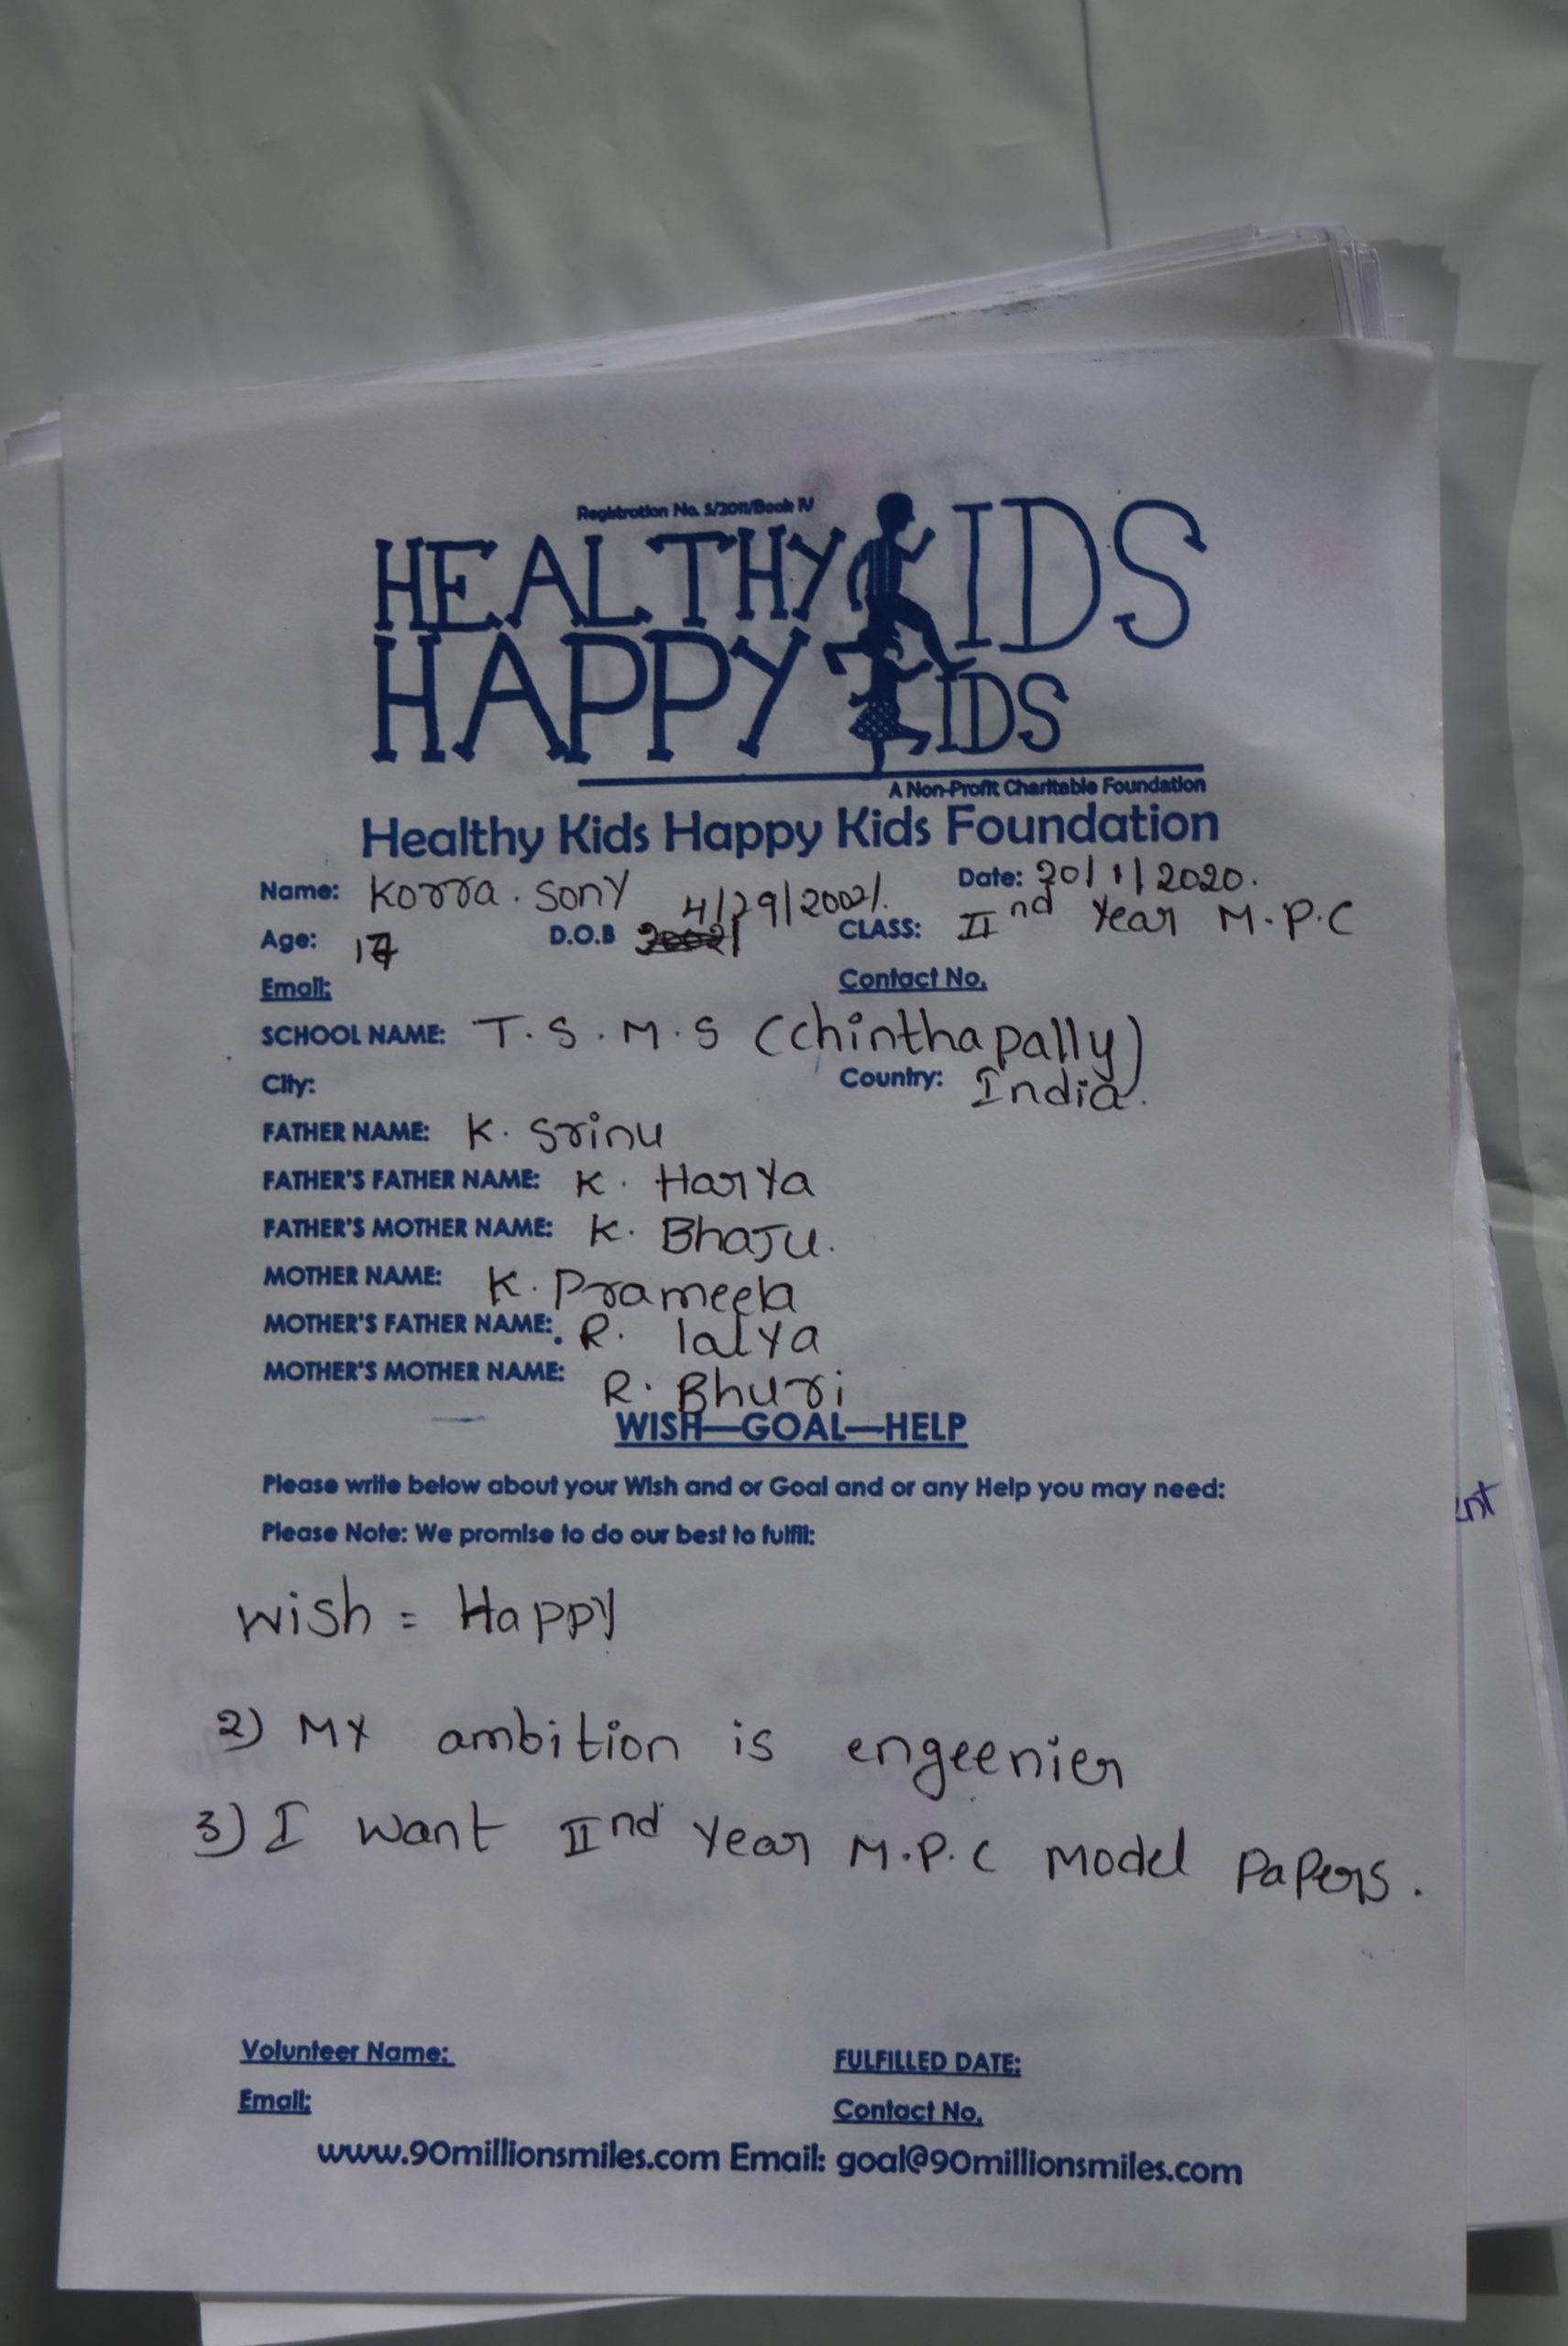 Registration No. 5/2011/Book IV
HEALTHY KIDS
HAPPY KIDS
A Non-Profit Charitable Foundation
Healthy Kids Happy Kids Foundation
Name: Korra. Sony Date: 20/1/2020.
Age: 17 D.O.B 4/29/2002/. CLASS: IInd Year M.P.C
Email: Contact No.
SCHOOL NAME: T.S.M.S (Chinthapally)
City: Country: India.
FATHER NAME: K. Srinu
FATHER'S FATHER NAME: K. Harya
FATHER'S MOTHER NAME: K. Bhaju.
MOTHER NAME: K. Prameela
MOTHER'S FATHER NAME: R. lalya
MOTHER'S MOTHER NAME: R. Bhuri
WISH—GOAL—HELP
Please write below about your Wish and or Goal and or any Help you may need:
Please Note: We promise to do our best to fulfil:
wish = Happy
2) My ambition is engeenier
3) I want IInd Year M.P.C Model Papers.
Volunteer Name: FULFILLED DATE:
Email: Contact No.
www.90millionsmiles.com Email: goal@90millionsmiles.com